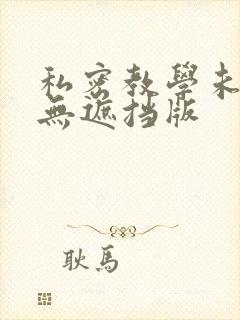 私密教學未
無遮挡版
耿馬